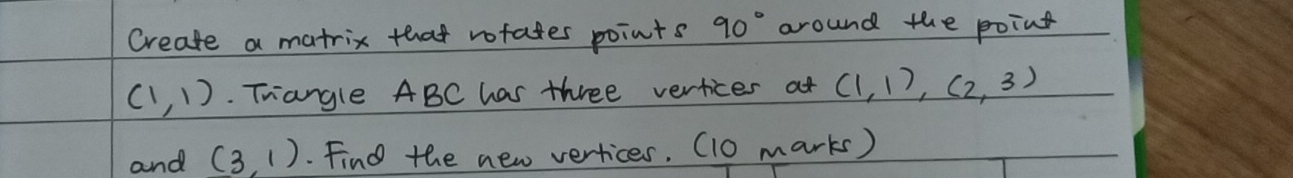 Create a matrix that rotates points 90° around the point
(1,1). Triangle ABC has three vertices at (1,1), (2,3)
and (3,1). Find the new vertices. (10 marks)